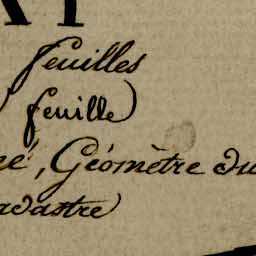 feuilles
feuille)
né, Géomètre du
adastre